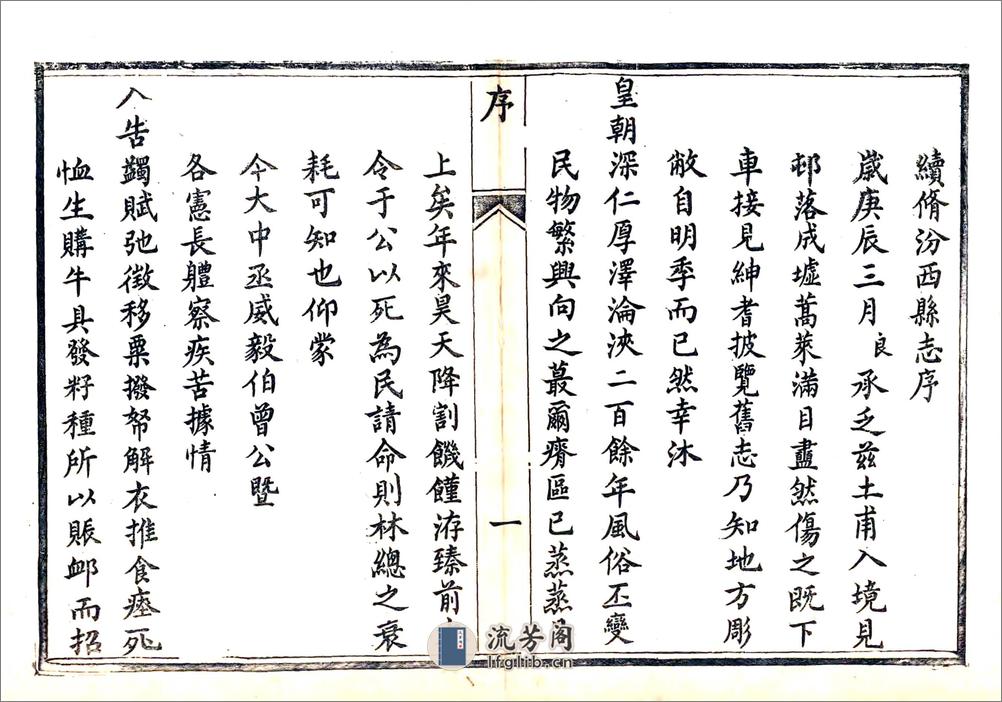 續脩汾西縣志序
歲庚辰三月良承乏茲土甫入境見
邨落成墟蒿萊滿目盡然傷之既下
車接見紳耆披覽舊志乃知地方彫
敝自明季而已然幸沐
皇朝深仁厚澤淪浹二百餘年風俗丕變
民物繁興向之蕞爾瘠區已蒸蒸
序
一
上矣年來昊天降割饑饉洊臻前
令于公以死為民請命則林總之衰
耗可知也仰蒙
今大中丞威毅伯曾公暨
各憲長軆察疾苦據情
入告蠲賦弛徵移粟撥帑解衣推食瘞死
恤生購牛具發籽種所以賑卹而招
流芳阁
lfglib.cn